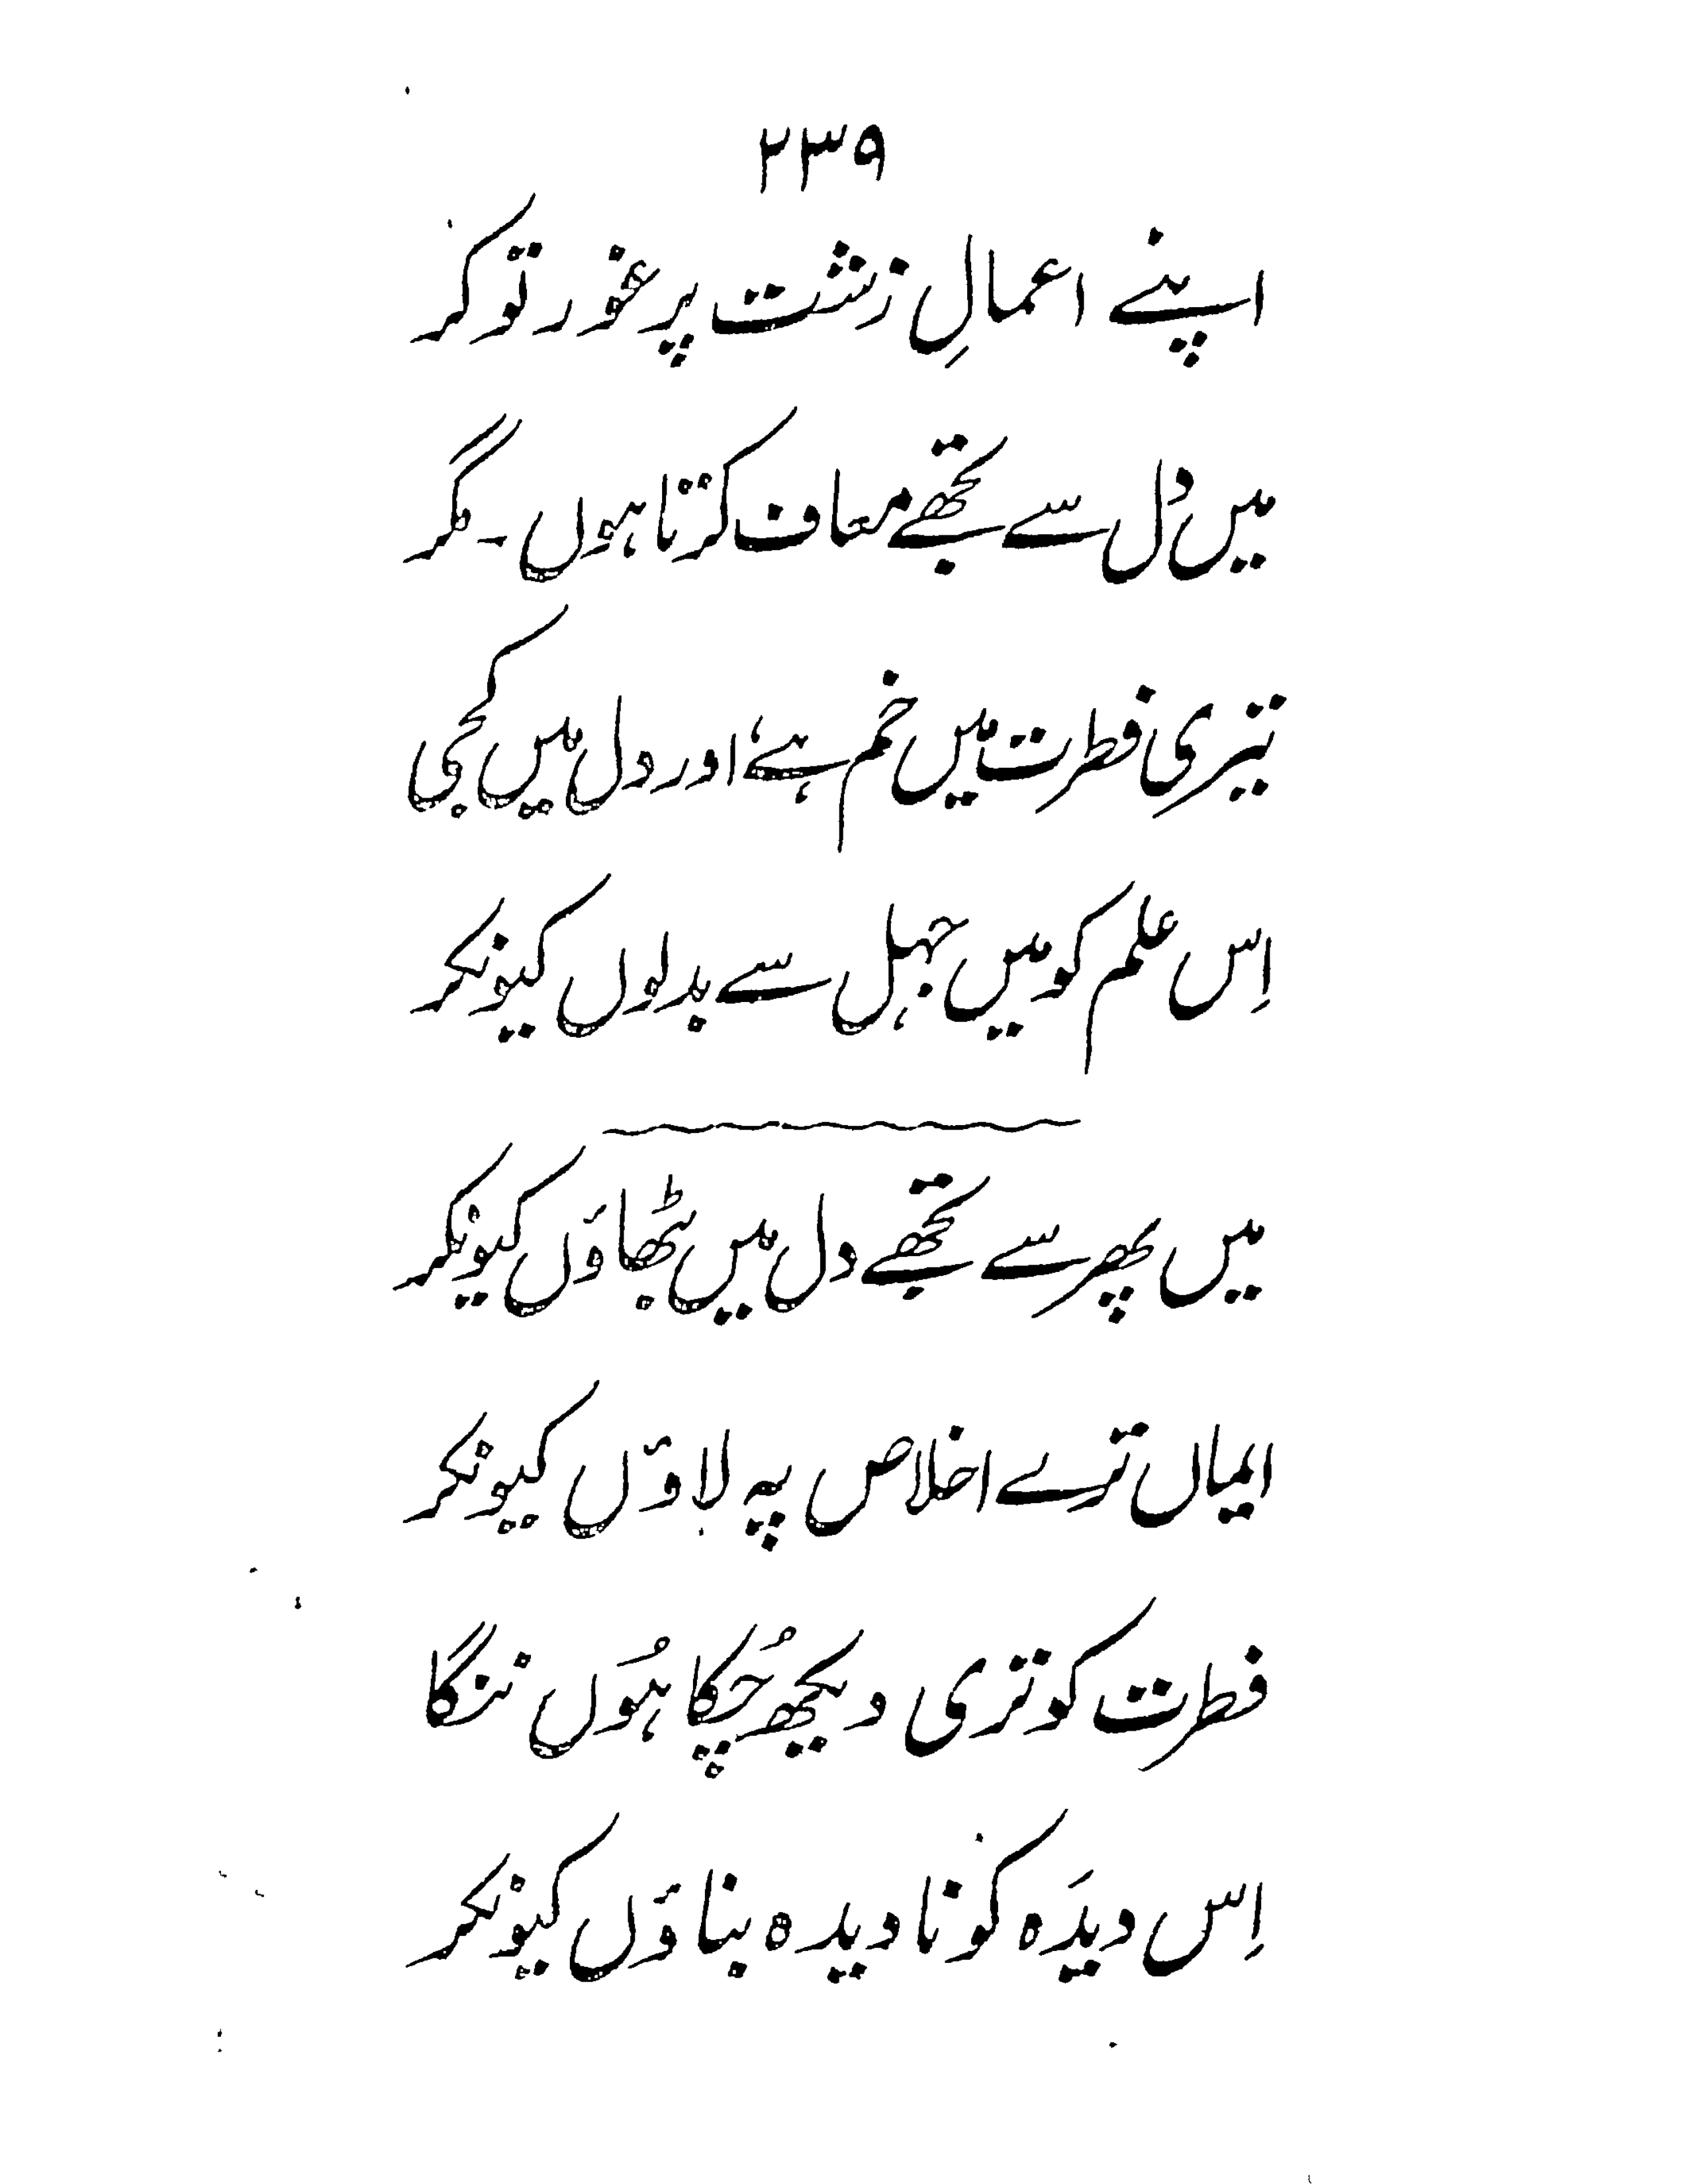 ۲۳۹
اپنے اعمالِ زشت پر غور تو کر
میں دل سے تجھے معاف کرتا ہوں ۔ مگر
تیری فطرت میں خم ہے، اور دل میں کجی
اِس علم کو میں جہل سے بدلوں کیونکر
میں پھر سے تجھے دل میں بٹھاؤں کیونکر
ایماں ترے اخلاص پہ لاؤں کیونکر
فطرت کو تری دیکھ چُکا ہُوں ننگا
اِس دیدَہ کو نادیدہ بناؤں کیونکر